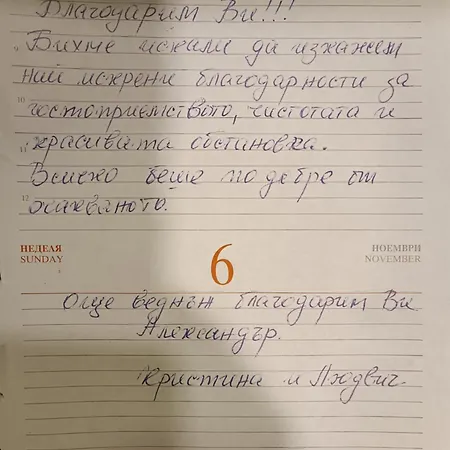 Благодарим Ви!!!
Бихме искали да изкажем
най искрени благодарности за
10
гостоприемството, чистотата и
11 красивата обстановка.
Всичко беше по добре от
12
очакваното.
НЕДЕЛЯ 6 НОЕМВРИ
SUNDAY NOVEMBER
Още веднъж благодарим Ви
Александър.
Кристина и Людвич.